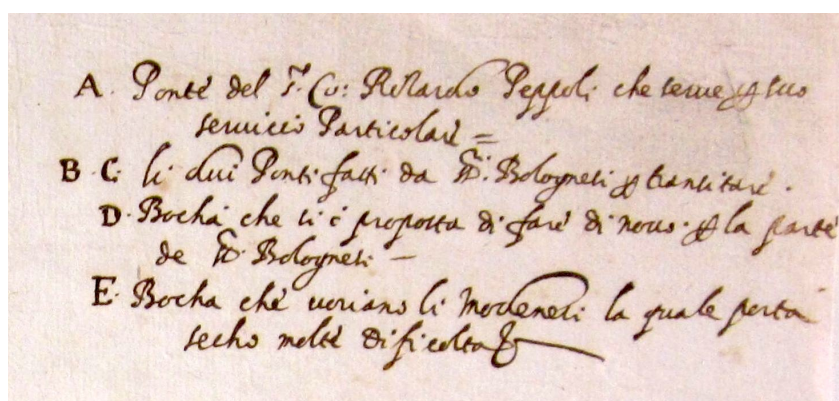 A. Ponte del Sr. Co: Ricardo Peppoli che serue p suo
seruicio Particolare =
B. C. li dui Ponti fatti da SSri. Bolognesi p transitare.
D. Bocha che si è proposta di fare di nouo. p la parte
de SSri. Bolognesi —
E. Bocha che uoriano li Modenesi la quale porta
secho molte dificolta